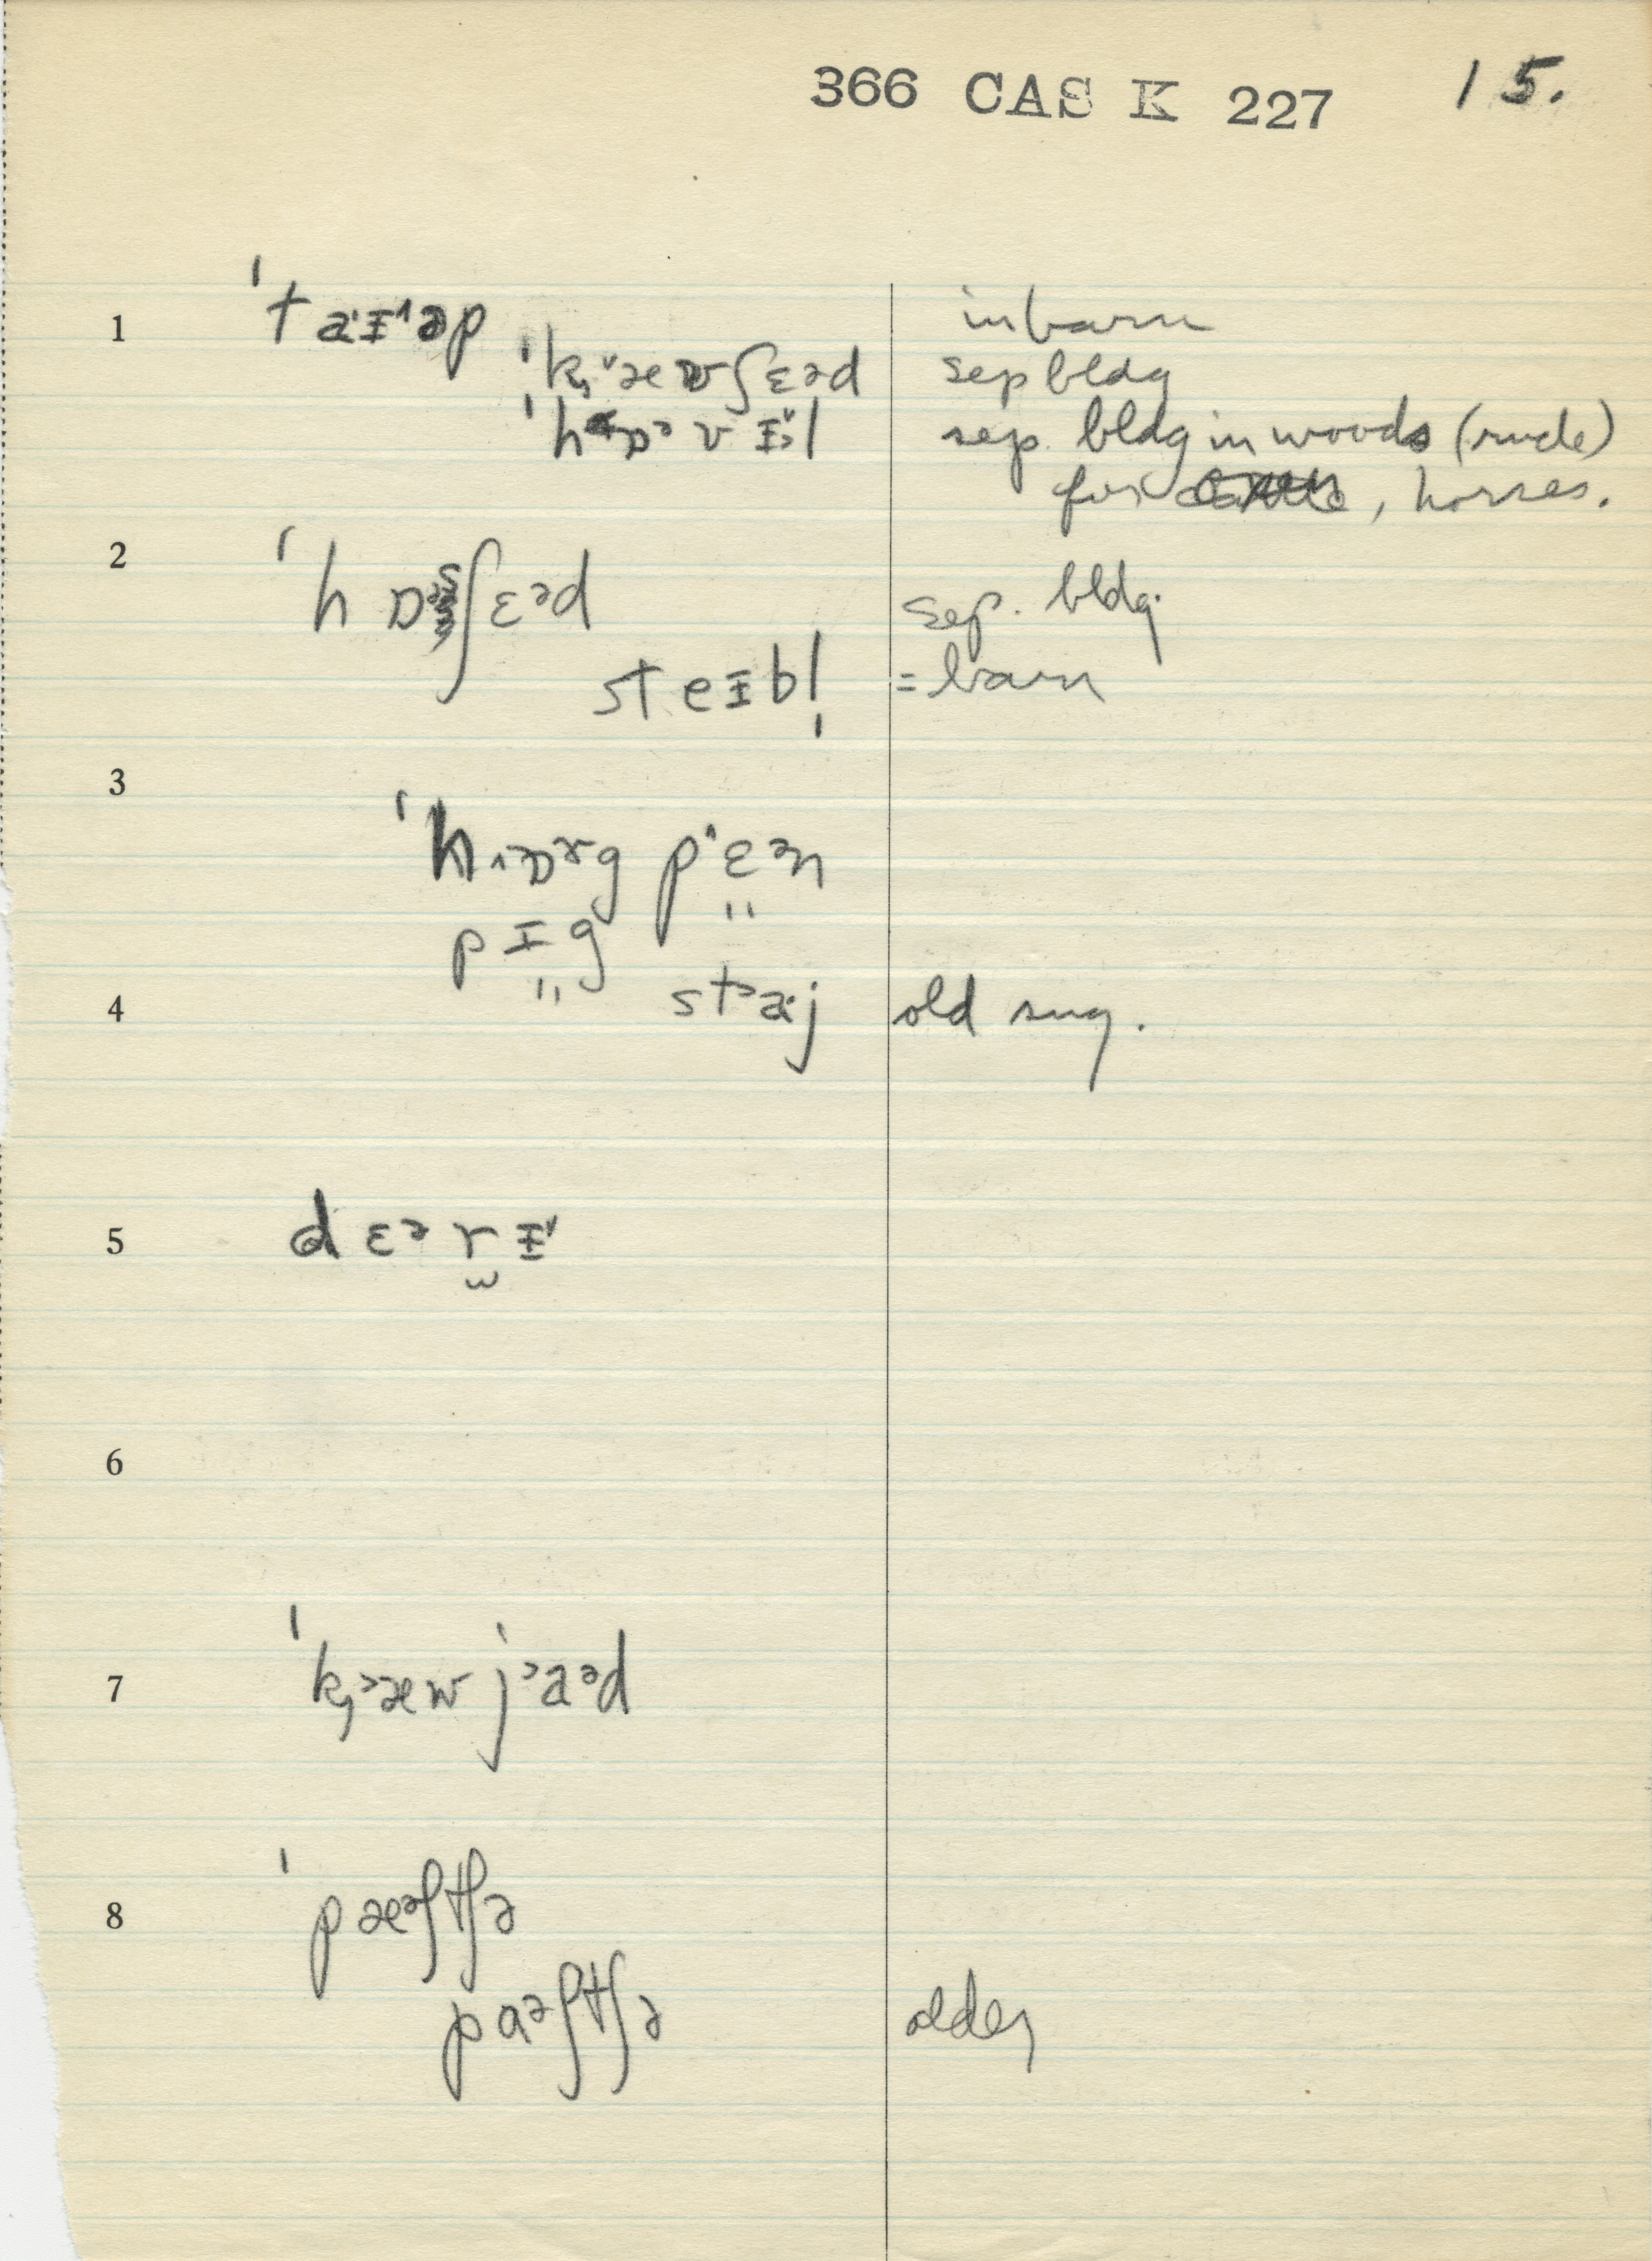 366 CAS K 227 15.
1 ˈtaɪəp in barn
ˈkæwʃɛəd sep bldg
ˈhɒəvɪl sep. bldg in woods (rude)
for , horses.
2 ˈhɒəsʃɛəd sep. bldg.
steɪbl̩ = barn
3 ˈhɒɤg pɛən
pɪg
4 staj old sug.
5 dɛərɪ
6
7 ˈkæw jaəd
8 ˈpæəʃtʃə
paəʃtʃə older